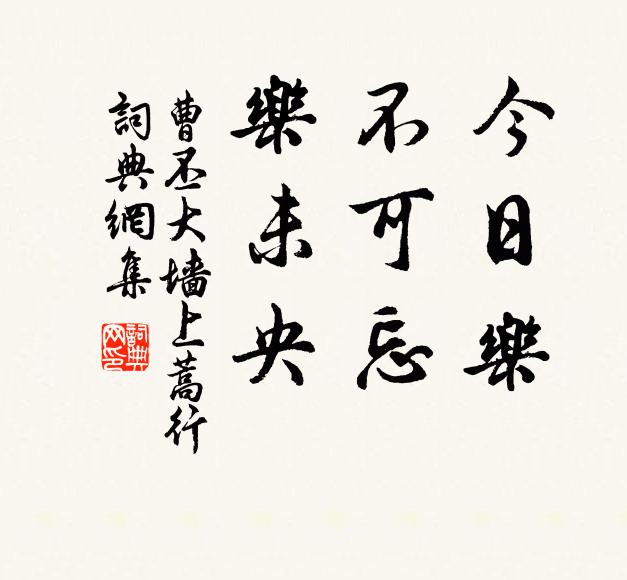 今日樂
不可忘
樂未央
曹丕大墻上蒿行
詞典網集
詞典网印